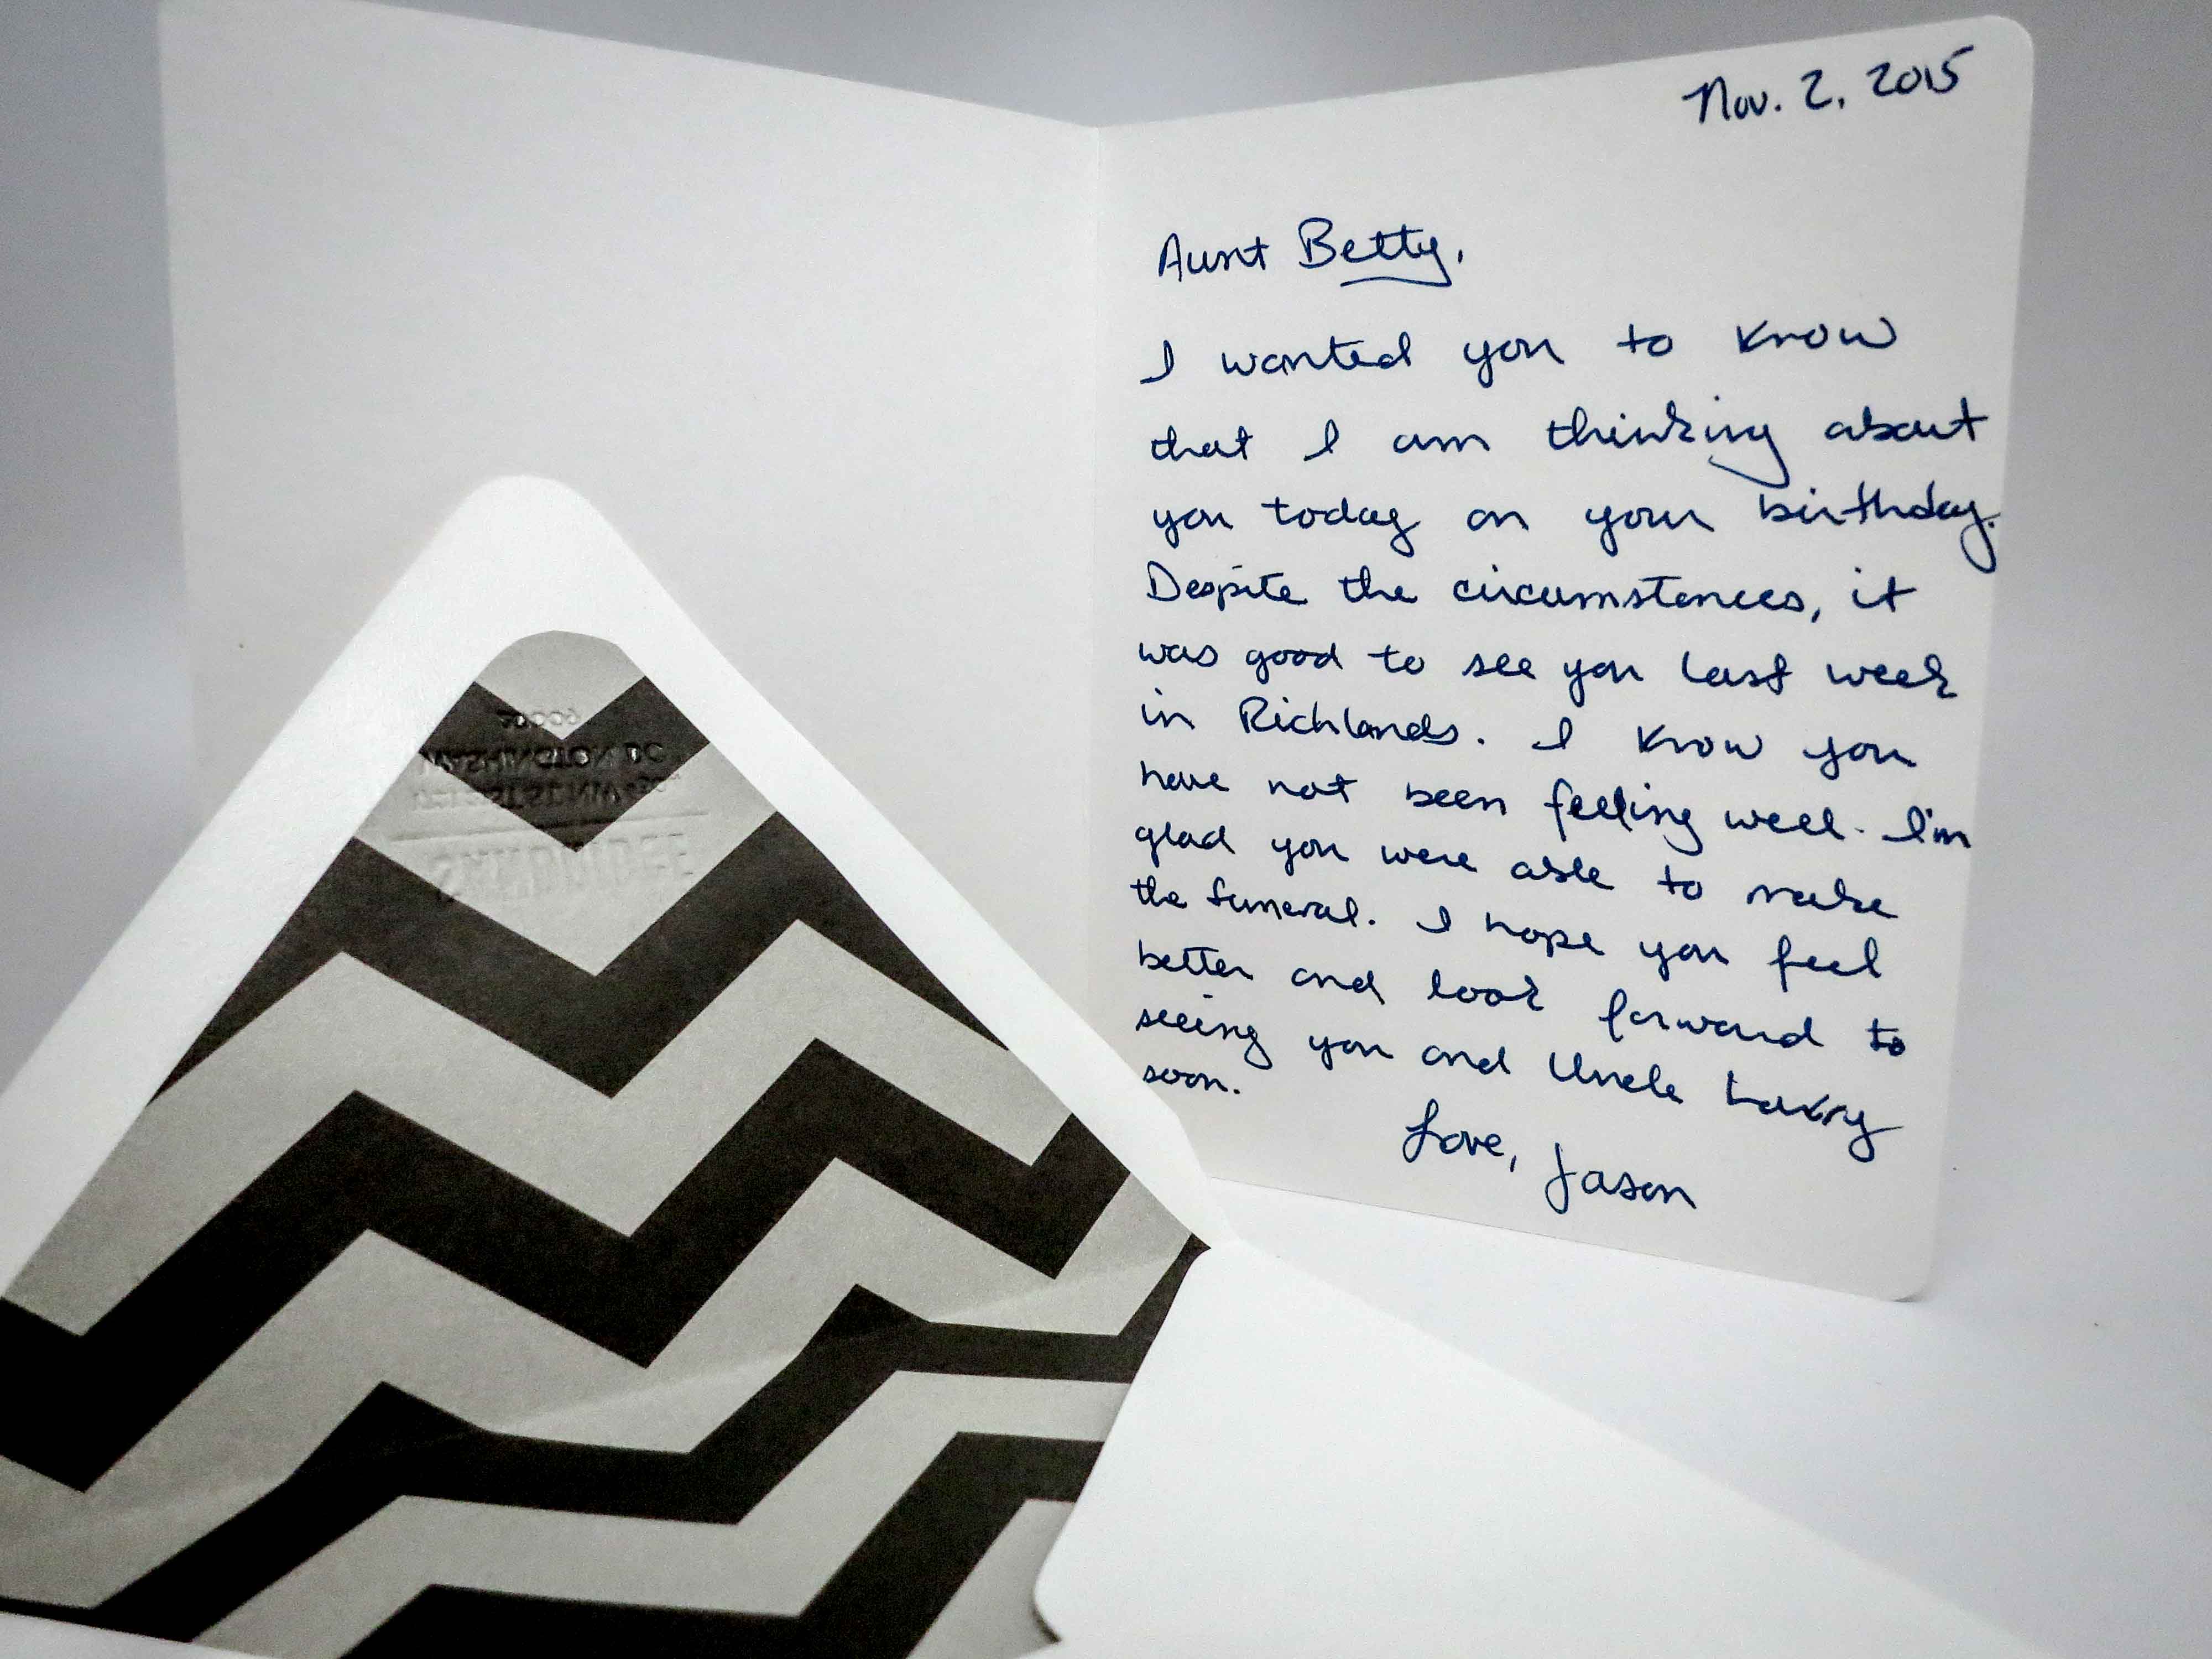 Nov. 2, 2015
Aunt Betty,
I wanted you to know
that I am thinking about
you today on your birthday.
Despite the circumstances, it
was good to see you last week
in Richlands. I know you
have not been feeling well. I'm
glad you were able to make
the funeral. I hope you feel
better and look forward to
seeing you and Uncle Larry
soon.
Love, Jason
20009
WASHINGTON DC
ST NW